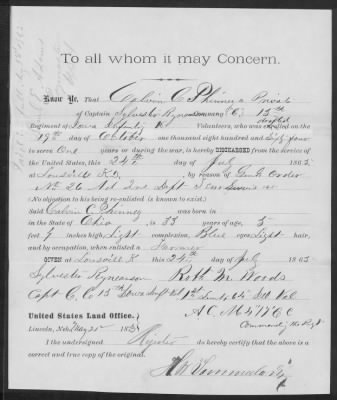 To all whom it may Concern.
Know Ye, That Calvin C Phinney a Private
of Captain Sylvester Rynearson Company (C) 15th
drafted
Regiment of Iowa Infantry Vol Volunteers, who was enrolled on the
19th day of October one thousand eight hundred and Sixty four
to serve One years or during the war, is hereby DISCHARGED from the service of the
United States, this 24th day of July 1865
at Louisville Ky, by reason of Genl Order
No 26 Dept
(No objection to his being re-enlisted is known to exist.)
Said Calvin C. Phinney was born in
in the State of Ohio, is 33 years of age, 5
feet 9 inches high, Light complexion, Blue eyes, Light hair,
and by occupation, when enlisted a Farmer
GIVEN at Louisville K this 24th day of July 1865
Sylvester Rynearson
Capt C. Co 15th Iowa Inft Vol
Robt M. Woods
1st Lieut 64 Ill Vol
A C M
Commandg the Regt
United States Land Office,
Lincoln, Neb. May 187
I the undersigned Register do hereby certify that the above is a
correct and true copy of the original.